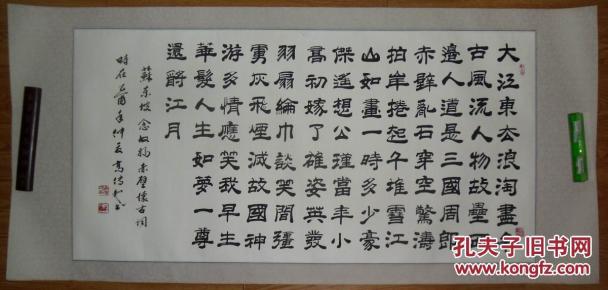 大江東去浪淘盡千
古風流人物故壘西
邊人道是三國周郎
赤壁亂石穿空驚濤
拍岸捲起千堆雪江
山如畫一時多少豪
傑遙想公瑾當年小
喬初嫁了雄姿英發
羽扇綸巾談笑間彊
虜灰飛煙滅故國神
游多情應笑我早生
華髮人生如夢一尊
還酹江月
蘇东坡念奴嬌赤壁懷古詞
時在乙酉年仲夏高
孔夫子旧书网
www.kongfz.com